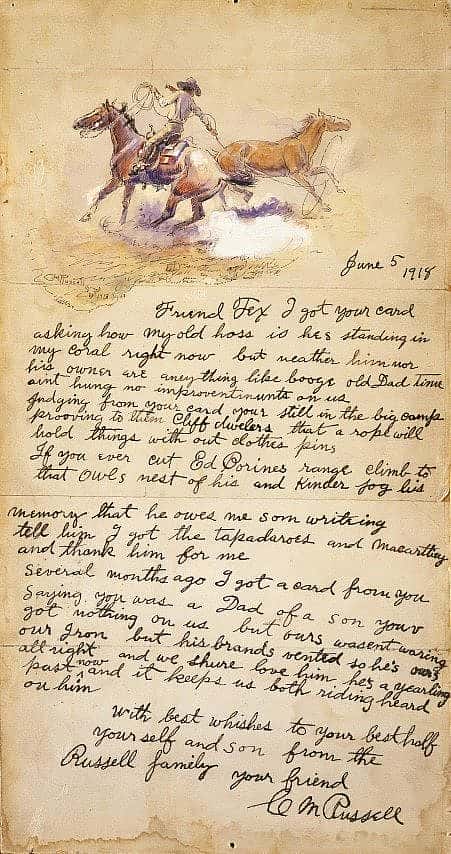 CM Russell
June 5 1918
Friend Tex I got your card
asking how my old hoss is hes standing in
my coral right now but neather him nor
his owner are aney thing like booge old Dad time
aint hung no improventinunts on us
Judging from your card your still in the big camps
prooving to them Cliff dwelers that a rope will
hold things with out clothes pins
If you ever cut Ed Borines range climb to
that Owls nest of his and kinder jog his
memory that he owes me som writhing
tell him I got the tapadaroes and macarthey
and thank him for me
Several months ago I got a card from you
saying you was a Dad of a son youv
got nothing on us but ours wasent waring
our Iron but his brands vented so he's ours
all right and we shure love him he's a yearling
past now and it keeps us both riding heard
on him
With best whishes to your best half
your self and son from the
Russell family
your friend
C M Russell